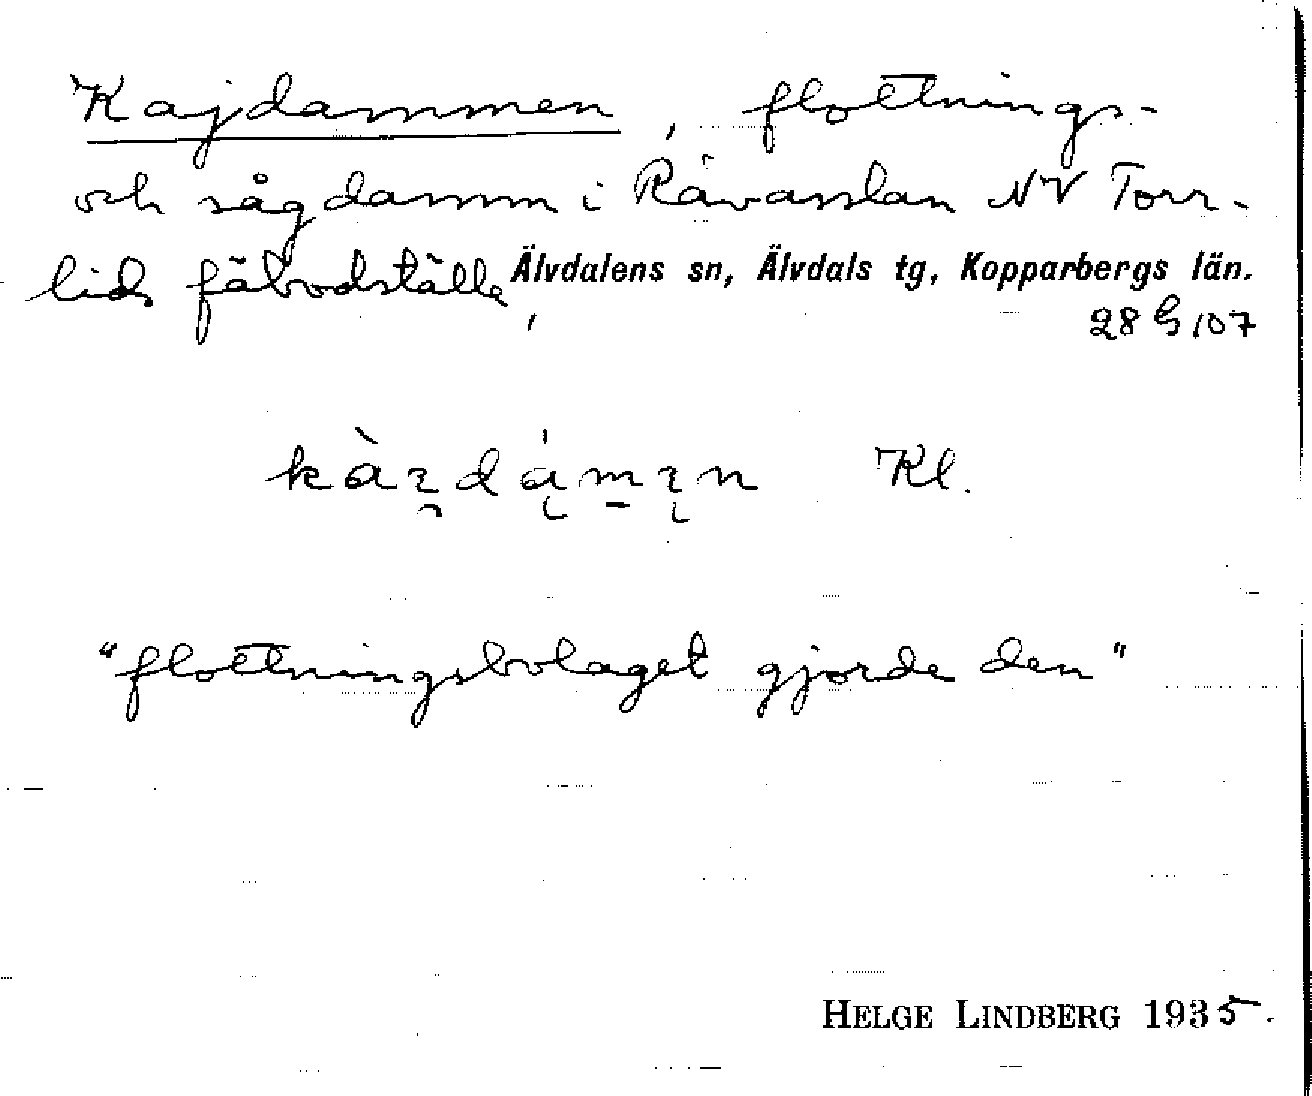 Kajdammen, flottnings-
och sågdamm i Råvasslan NV Torr-
lids fäbodställe, Älvdalens sn, Älvdals tg, Kopparbergs län.
28 G 107
Kl.
"flottningsbolaget gjorde den"
HELGE LINDBERG 1935.